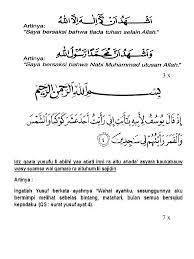 اَشْهَدُ اَنْ لَآ اِلٰهَ اِلَّا اللهُ
Artinya:
"Saya bersaksi bahwa tiada tuhan selain Allah."
وَاَشْهَدُ اَنَّ مُحَمَّدًا رَسُوْلُ اللهِ
Artinya:
"Saya bersaksi bahwa Nabi Muhammad utusan Allah."
3 x
بِسْمِ اللهِ الرَّحْمٰنِ الرَّحِيْمِ
إِذْ قَالَ يُوسُفُ لِأَبِيهِ يَا أَبَتِ إِنِّي رَأَيْتُ أَحَدَ عَشَرَ كَوْكَبًا وَالشَّمْسَ
وَالْقَمَرَ رَأَيْتُهُمْ لِي سَاجِدِينَ
Idz qaala yusufu li abiihi yaa abati inni ra aitu ahada' asyara kaukabauw
wasy syamsa wal qamara ra aituhum lii sajidin
3 x
Artinya :
Ingatlah Yusuf berkata ayahnya "Wahai ayahku, sesungguhnya aku
bermimpi melihat sebelas bintang, matahari, bulan semua bersujud
kepadaku (QS : surat yusuf ayat 4).